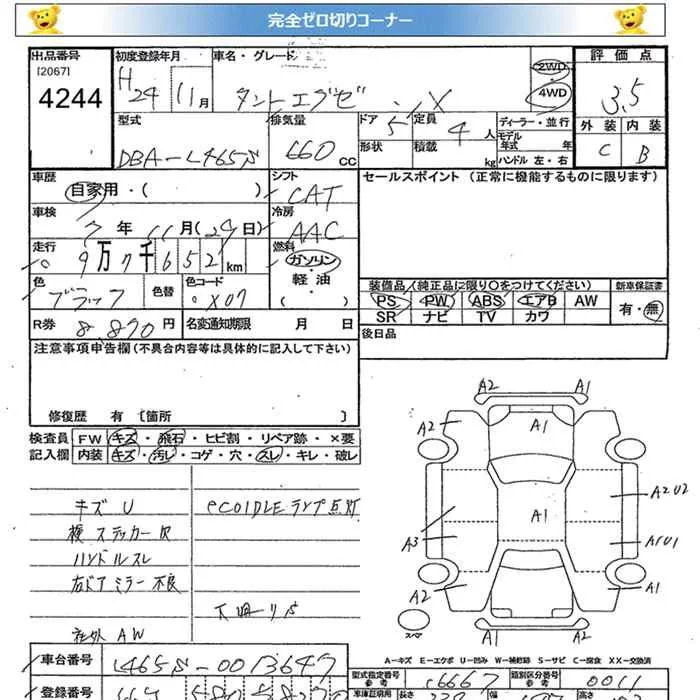 完全ゼロ切りコーナー
出品番号 初度登録年月 車名・グレード 評価点
[2067] H24年 11月 タントエグゼ X 2WD 4WD 3.5
4244
型式 排気量 ドア 5 定員 4人 ディーラー・並行 外装 内装
DBA-L465S 660cc 形状 積載 kg モデル年式 年 C B
ハンドル 左・右
車歴 シフト セールスポイント (正常に機能するものに限ります)
自家用・( ) CAT
車検 冷房
7年11月(29日) AAC
走行 燃料
9万7千652km ガソリン・軽油・
色 色替 色コード 装備品(純正品に限り○をつけてください) 新車保証書
ブラック X07 PS PW ABS エアB AW 有・無
SR ナビ TV カワ
R券 8,890円 名変通知期限 月 日 後日品
注意事項申告欄(不具合内容等は具体的に記入して下さい)
修復歴 有 [箇所 ]
検査員 FW キズ・飛石・ヒビ割・リペア跡・×要
記入欄 内装 キズ・汚レ・コゲ・穴・スレ・キレ・破レ
キズ U eCOIDLEランプ点灯
ステッカー
ハンドルスレ
右ドアミラー不良
社外AW
A2 A1
A2 A1
A2U2
A1
A3 A1U1
A2 A1
スペア A1 A2
A-キズ E-エクボ U-凹み W-補修跡 S-サビ C-腐食 XX-交換済
車台番号 L465S-0013647 型式指定番号 参考 16667 類別区分番号 参考 0011
登録番号 車庫証明用 長さ 高さ